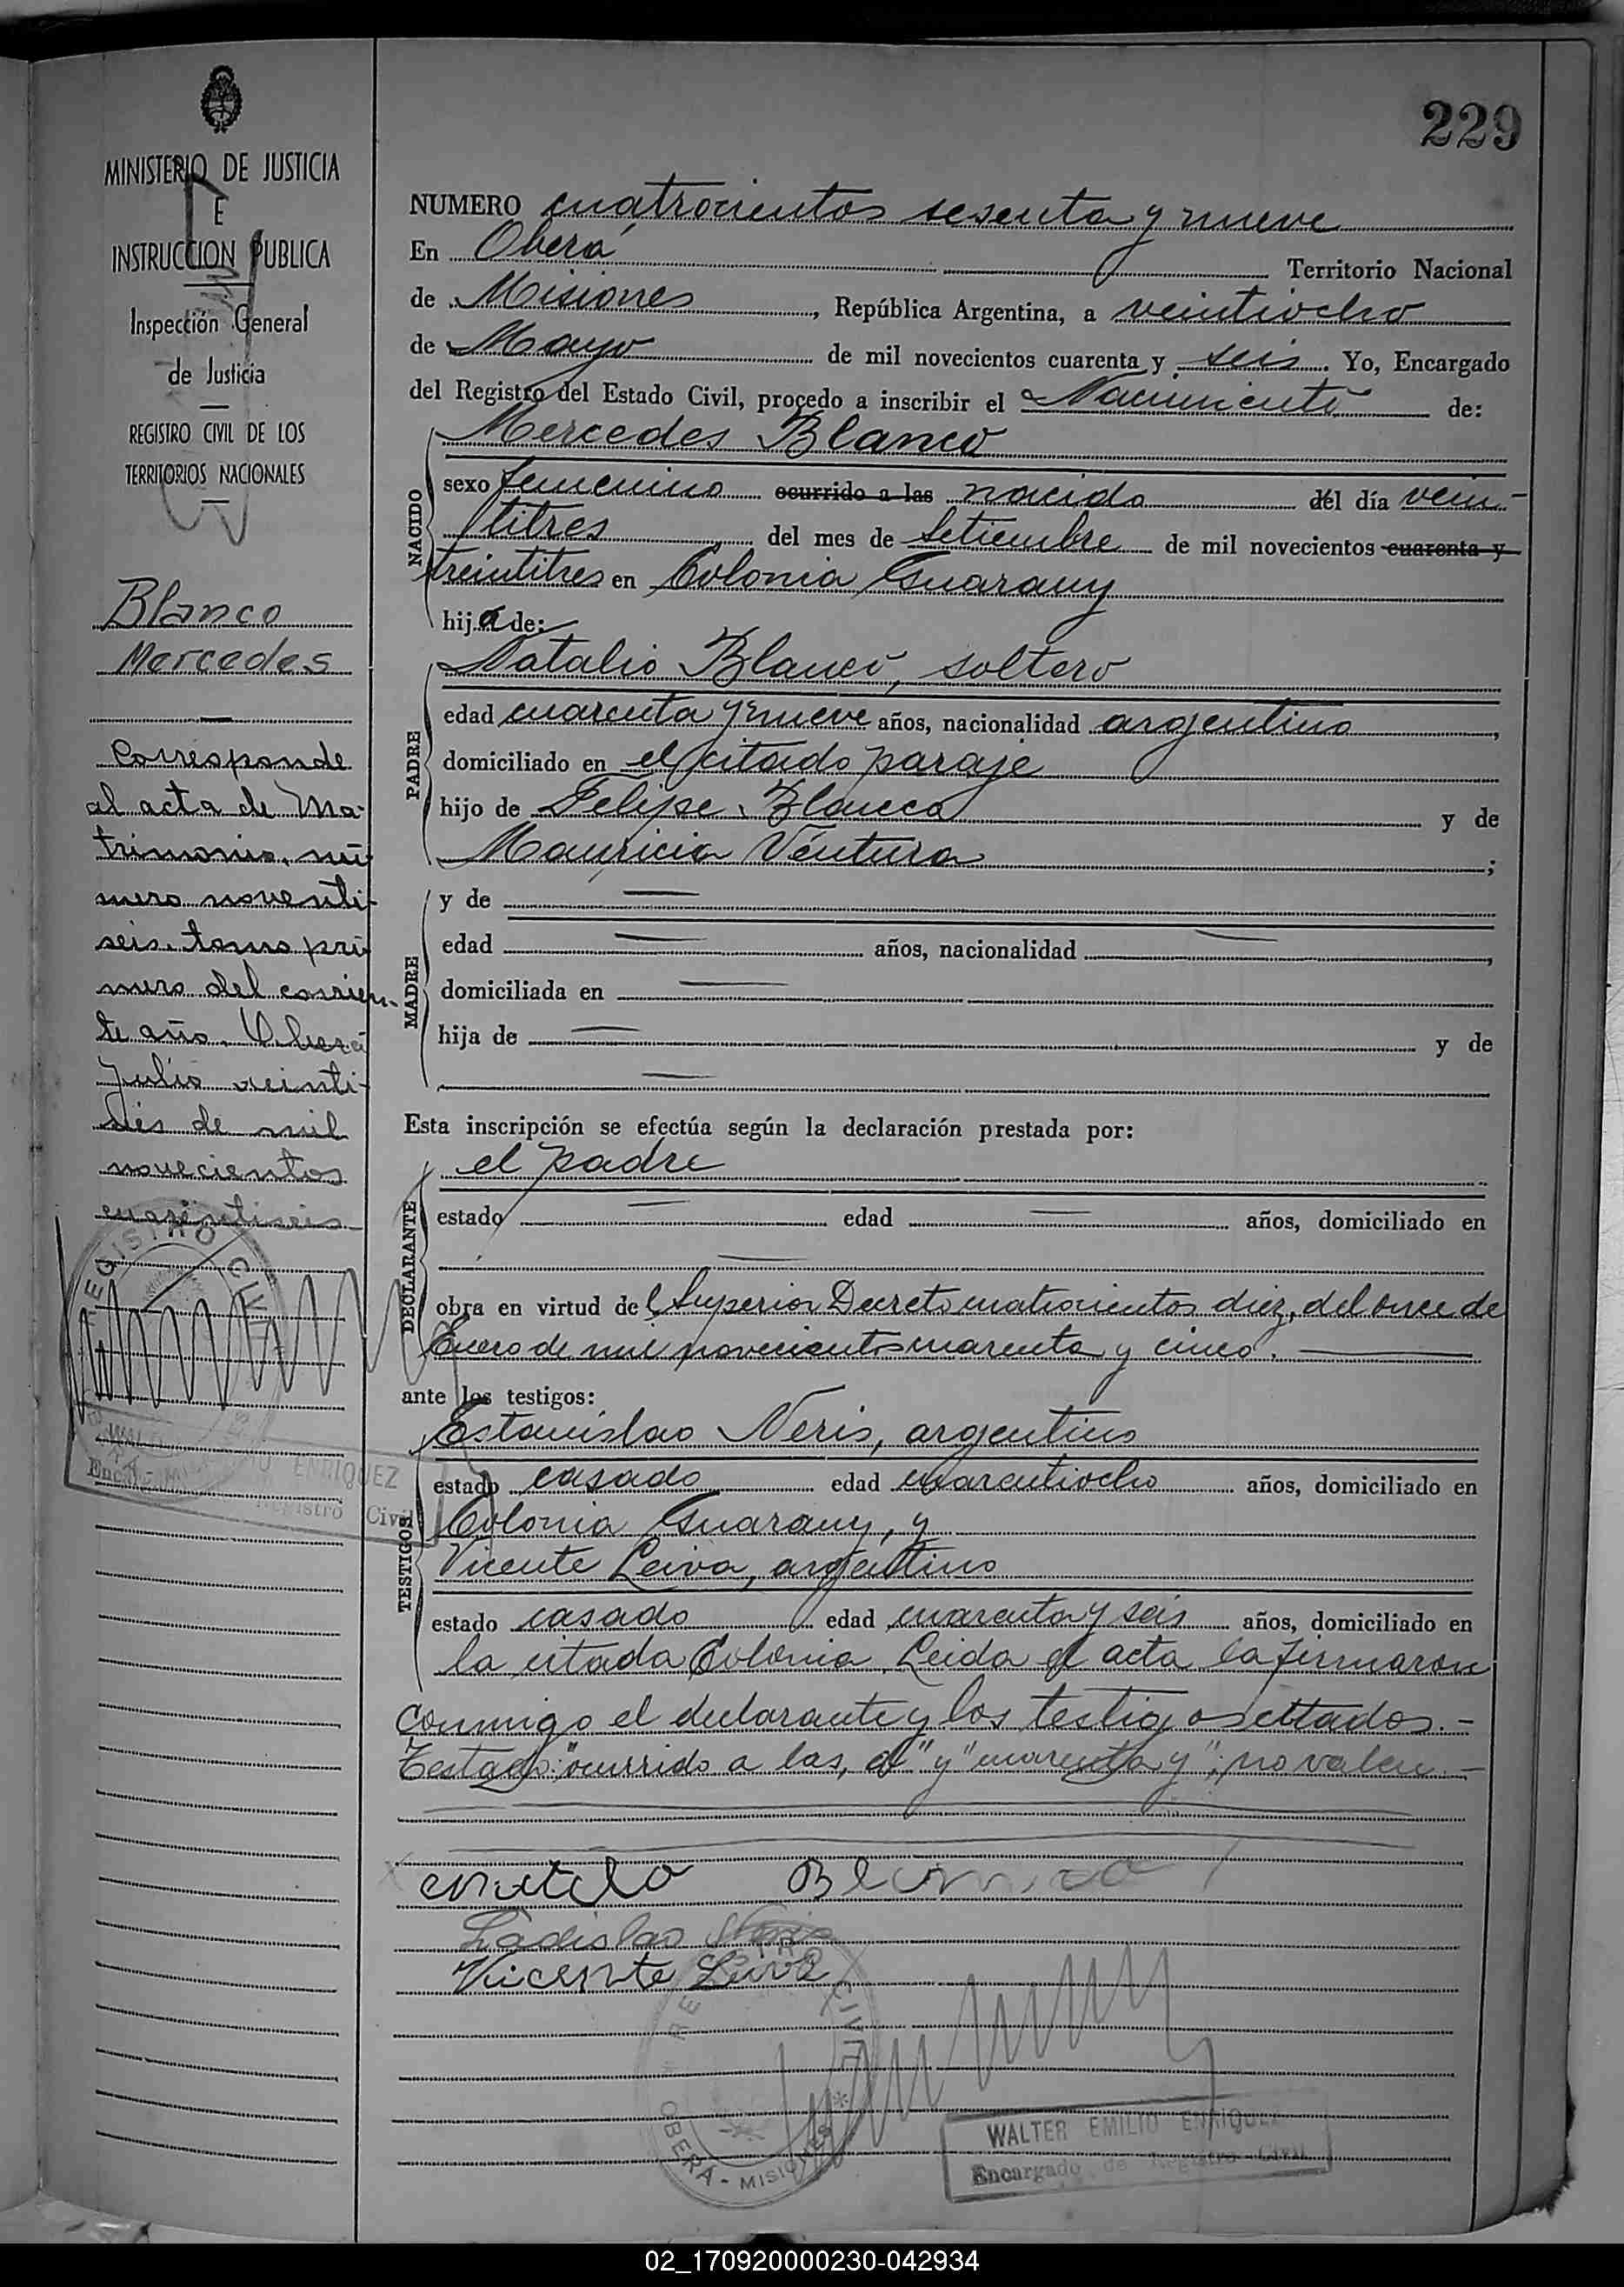 229
MINISTERIO DE JUSTICIA
E
INSTRUCCION PUBLICA
Inspección General
de Justicia
REGISTRO CIVIL DE LOS
TERRITORIOS NACIONALES
Blanco
Mercedes
Corresponde
al acta de Ma-
trimonio, nú-
mero noventi-
seis tomo pri-
mero del corrien-
te año. Oberá
Julio veinti-
séis de mil
novecientos
cuarentiseis
REGISTRO CIVIL
ENRIQUEZ
Registro Civil
NUMERO cuatrocientos sesenta y nueve
En Oberá Territorio Nacional
de Misiones, República Argentina, a veintiocho
de Mayo de mil novecientos cuarenta y seis. Yo, Encargado
del Registro del Estado Civil, procedo a inscribir el Nacimiento de:
NACIDO
Mercedes Blanco
sexo femenino ocurrido a las nacida del día vein-
titres del mes de Setiembre de mil novecientos cuarenta y
treintitres en Colonia Guarany
hija de:
PADRE
Natalio Blanco, soltero
edad cuarenta y nueve años, nacionalidad argentino,
domiciliado en el citado paraje
hijo de Felipe Blanco y de
Mauricia Ventura;
MADRE
y de —
edad — años, nacionalidad —,
domiciliada en —
hija de — y de
—
Esta inscripción se efectúa según la declaración prestada por:
DECLARANTE
el padre
estado — edad — años, domiciliado en
—
obra en virtud del Superior Decreto cuatrocientos diez, del once de
Enero de mil novecientos cuarenta y cinco.
ante los testigos:
TESTIGOS
Estanislao Neris, argentino
estado casado edad cuarentiocho años, domiciliado en
Colonia Guarany, y
Vicente Leiva, argentino
estado casado edad cuarenta y seis años, domiciliado en
la citada Colonia. Leida el acta la firmaron
conmigo el declarante y los testigos citados.-
Testado: "ocurrido a las, el" y "cuarenta y"; no valen.-
Blanco
Ladislao Neris
Vicente Leiva
REGISTRO CIVIL
OBERÁ - MISIONES
WALTER EMILIO ENRIQUEZ
Encargado de Registro Civil
02_170920000230-042934